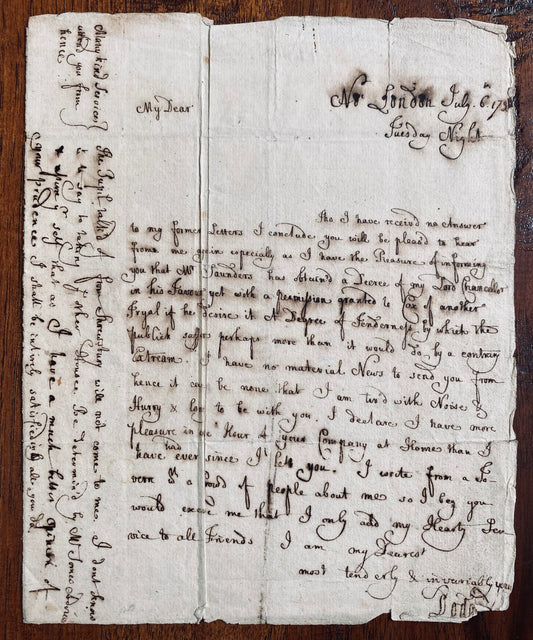 No London July 6th 17
Tuesday Night
My Dear
Tho I have receivd no Answer
to my former Letters I conclude you will be pleasd to hear
from me again especially as I have the Pleasure of informing
you that Mr Saunders has obtaind a Decree of my Lord Chancellor
in his Favour yet with a permission granted to of another
Tryal if he desire it A Degree of Tenderness by which the
publick safer perhaps more than it would do by a contrary
Extream. I have no material News to send you from
hence it can be none that I am tird with Noise &
Hurry & long to be with you. I declare I have more
pleasure in one Hour of your Company at Home than I
have had ever since I left you. I write from a Ta-
vern & a crowd of people about me so I beg you
would excuse me that I only add my Hearty Ser-
vice to all Friends I am my Dearest
most tenderly & invariably your
Many kind Services
attend you from
hence
The Pupil talkd of from Shrewsbury will not come to me. I dont know
to say to taking other House. Be determind by Mr Jones Advice
& your self that as I have a much better opinion of
your prudence I shall be intirely satisfied in all you do